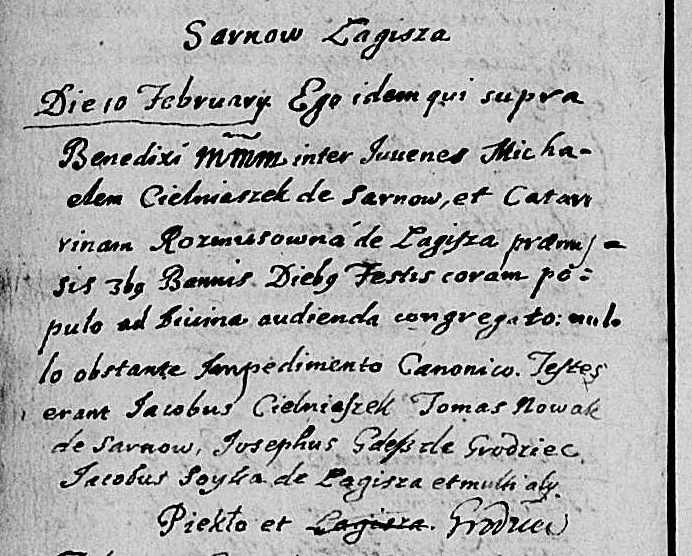 Sarnow Lagisza
Die 10 February Ego idem qui supra
Benedixi mmm inter Iuuenes Micha-
elem Cielniaszek de Sarnow, et Catar
rinam Rozmusowna de Lagisza præmis=
sis 3bq Bannis Diebq Festis coram pô:
pulo ad Divina audienda congregato: nul-
lo obstante Impedimento Canonico. Testes
erant Jacobus Cielniaszek Tomas Nowak
de Sarnow, Josephus Gdesz de Grodziec
Jacobus Soyka de Lagisza et multi alÿ.
Piekło et Lagisza. Grodziec